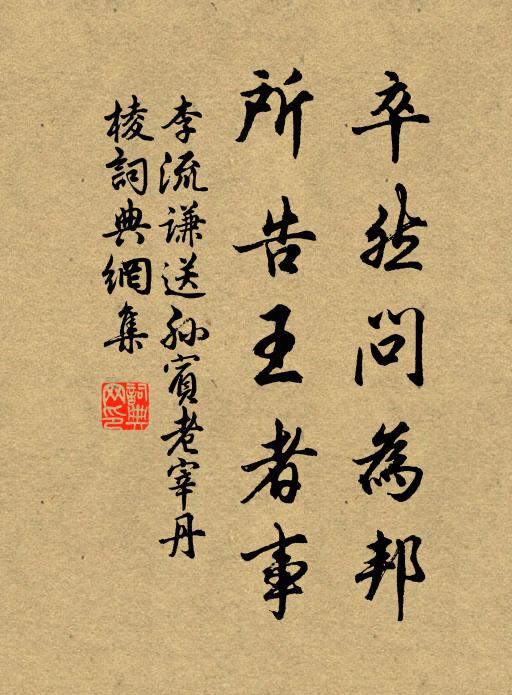 卒然問為邦
所告王者事
李流謙送孫賓老宰丹
棱詞典網集
詞典
网印